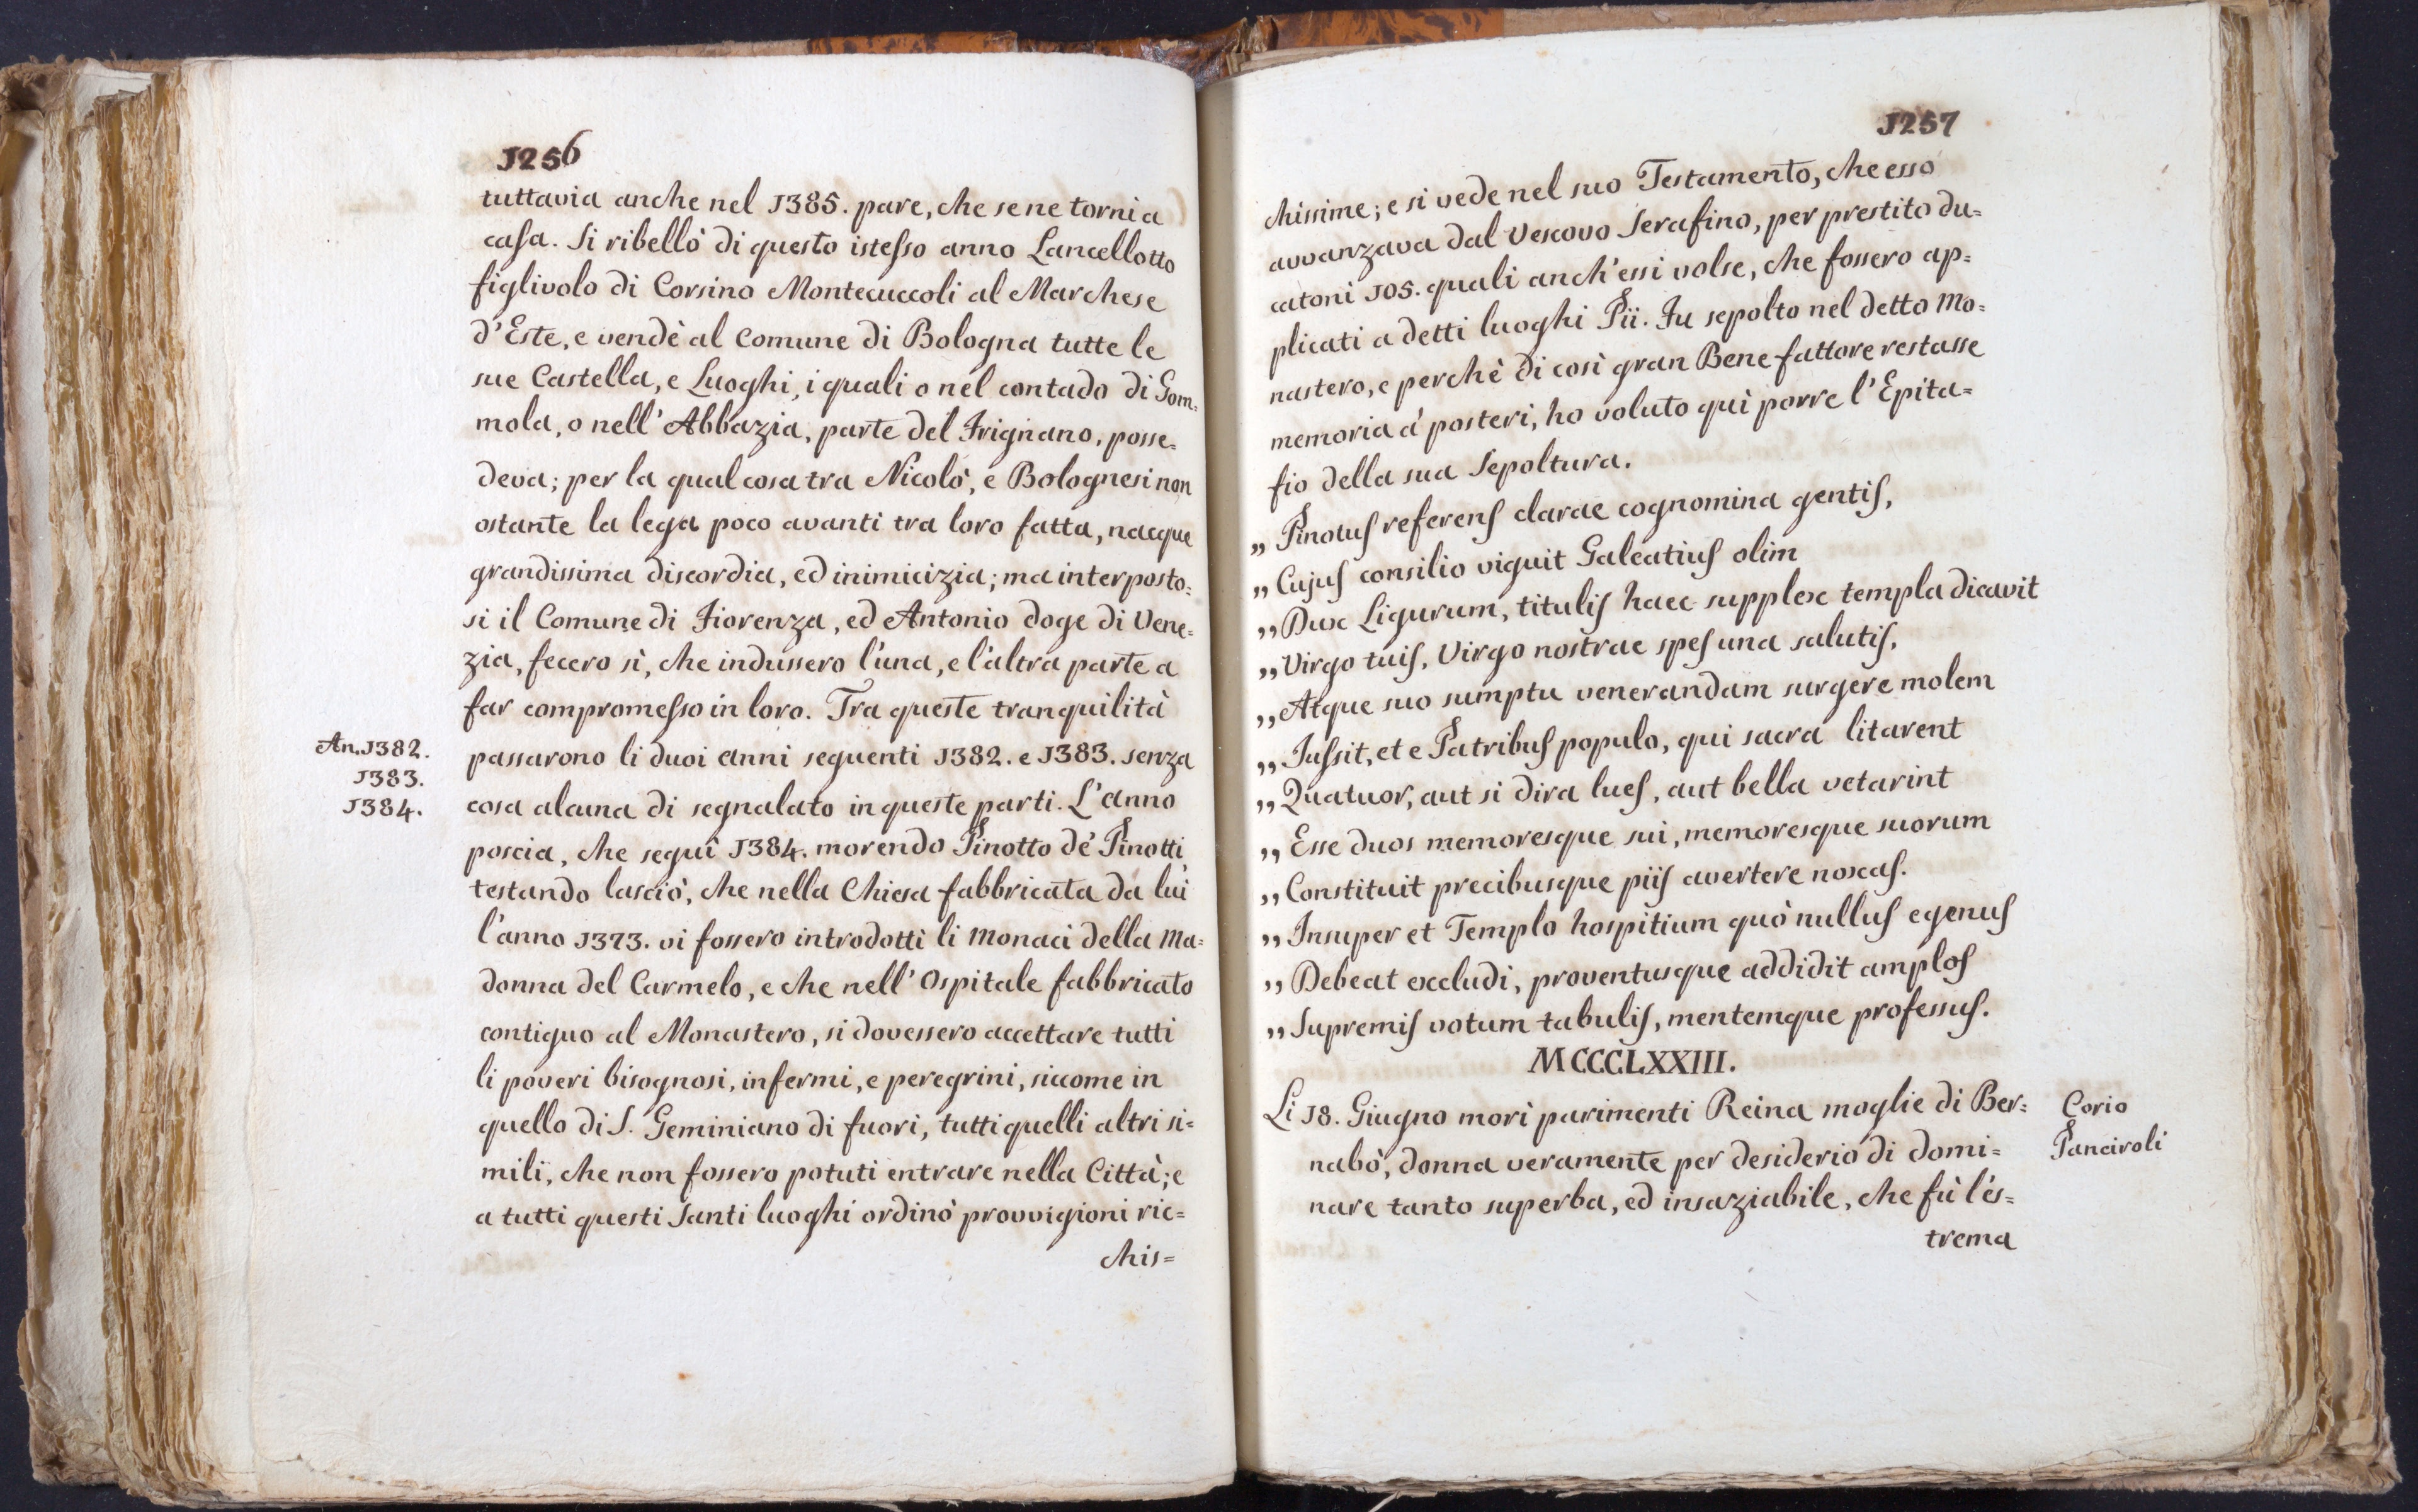 1256
tuttavia anche nel 1385. pare, che se ne torni a
casa. Si ribellò di questo istesso anno Lancellotto
figlivolo di Corsino Montecuccoli al Marchese
d'Este, e vendè al Comune di Bologna tutte le
sue Castella, e Luoghi, i quali o nel contado di Gom=
mola, o nell'Abbazia, parte del Frignano, posse=
deva; per la qual cosa tra Nicolò, e Bolognesi non
ostante la lega poco avanti tra loro fatta, nacque
grandissima discordia, ed inimicizia; ma interposto=
si il Comune di Fiorenza, ed Antonio doge di Vene=
zia, fecero sì, che indussero l'una, e l'altra parte a
far compromesso in loro. Tra queste tranquilità
An. 1382.
1383.
1384.
passarono li duoi anni seguenti 1382. e 1383. senza
cosa alcuna di segnalato in queste parti. L'anno
poscia, che seguì 1384. morendo Pinotto de' Pinotti
testando lasciò, che nella Chiesa fabbricata da lui
l'anno 1373. vi fossero introdotti li Monaci della Ma=
donna del Carmelo, e che nell'Ospitale fabbricato
contiguo al Monastero, si dovessero accettare tutti
li poveri bisognosi, infermi, e peregrini, siccome in
quello di S. Geminiano di fuori, tutti quelli altri si=
mili, che non fossero potuti entrare nella Città; e
a tutti questi Santi luoghi ordinò provvigioni ric=
chis=
1257
chissime; e si vede nel suo Testamento, che esso
avvanzava dal Vescovo Serafino, per prestito du=
catoni 105. quali anch'essi volse, che fossero ap=
plicati a detti luoghi Pii. Fu sepolto nel detto Mo=
nastero, e perchè di così gran Benefattore restasse
memoria a' posteri, ho voluto quì porre l'Epita=
fio della sua Sepoltura.
„ Pinotus referens clarae cognomina gentis,
„ Cujus consilio viguit Galeatius olim
„ Dux Ligurum, titulis haec supplex templa dicavit
„ Virgo tuis, Virgo nostrae spes una salutis,
„ Atque suo sumptu venerandam surgere molem
„ Jussit, et e Patribus populo, qui sacra litarent
„ Quatuor, aut si dira lues, aut bella vetarint
„ Esse duos memoresque sui, memoresque suorum
„ Constituit precibusque piis avertere noxas.
„ Insuper et Templo hospitium quò nullus egenus
„ Debeat excludi, proventusque addidit amplos
„ Supremis votum tabulis, mentemque professus.
MCCCLXXIII.
Li 18. Giugno morì parimenti Reina moglie di Ber=
nabò, donna veramente per desiderio di domi=
nare tanto superba, ed insaziabile, che fù l'es=
trema
Corio
Panciroli